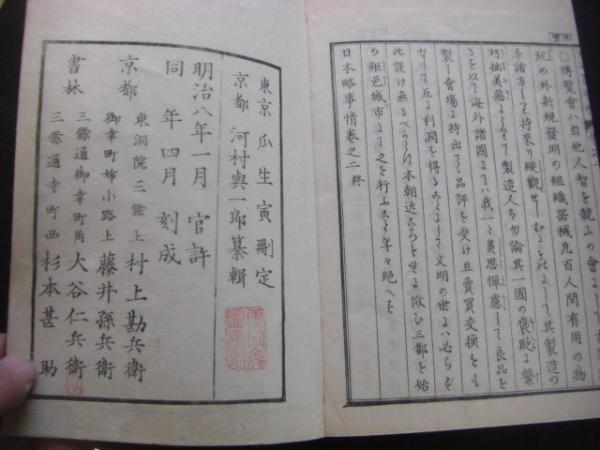 ○博覽會ハ自他人智を競ふの會にして古
玩の外新規發明の組織器械凡百人間有用の物
を諸方より持來り縱觀せしむる
巧拙美惡によりて製造人ハ勿論其一國の褒貶に繋
るを以て海外諸國にてハ我一と眞思憚慮して良品を
製し會場に持出して品評を受け且賣買交換をも
なして互に利潤を得る文明の世にハ必らず
此設け無るべからず本朝近ころを始
め郡邑城市にも之を行ふこと年々絶へず
日本略事情卷之二終
東京 瓜生寅刪定
京都 河村與一郎纂輯
明治八年一月 官許
同 年四月 刻成
京都 東洞院三條上 村上勘兵衛
御幸町姉小路上 藤井孫兵衛
書林 三條通御幸町角 大谷仁兵衛
三條通寺町西 杉本甚助